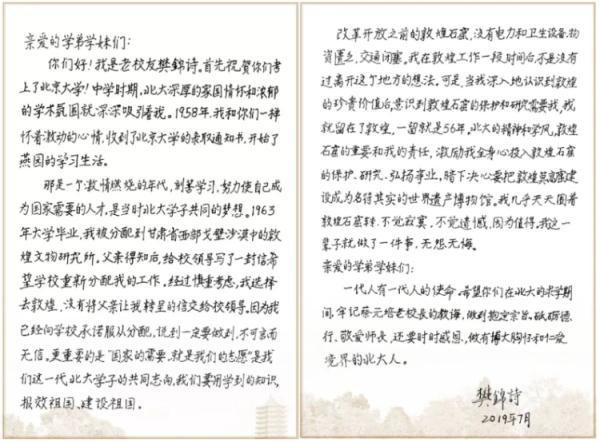 亲爱的学弟学妹们：
你们好！我是老校友樊錦詩。首先祝贺你们考
上了北京大学！中学时期，北大深厚的家国情怀和浓郁
的学术氛围就深深吸引着我。1958年，我和你们一样
怀着激动的心情，收到了北京大学的录取通知书，开始了
燕园的学习生活。
那是一个激情燃烧的年代，刻苦学习，努力使自己成
为国家需要的人才，是当时北大学子共同的梦想。1963
年大学毕业，我被分配到甘肃省西部戈壁沙漠中的敦
煌文物研究所。父亲得知后，给校领导写了一封信希
望学校重新分配我的工作。经过慎重考虑，我选择
去敦煌，没有将父亲让我转呈的信交给校领导。因为我
已经向学校承诺服从分配，说到一定要做到，不可言而
无信。更重要的是“国家的需要，就是我们的志愿”是我
们这一代北大学子的共同志向，我们要用学到的知识，
报效祖国、建设祖国。
改革开放之前的敦煌石窟，没有电力和卫生设备，物
资匮乏，交通闭塞。我在敦煌工作一段时间后，不是没有
过离开这个地方的想法。可是，当我深入地认识到敦煌
的珍贵价值后，意识到敦煌石窟的保护和研究需要我，我
就留在了敦煌，一留就是56年。北大的精神和学风，敦煌
石窟的重要和我的责任，激励我全身心投入敦煌石窟
的保护、研究、弘扬事业，暗下决心要把敦煌莫高窟建
设成为名符其实的世界遗产博物馆。我几乎天天围着
敦煌石窟转，不觉寂寞，不觉遗憾，因为值得。我这一
辈子就做了一件事，无怨无悔。
亲爱的学弟学妹们：
一代人有一代人的使命。希望你们在北大的求学期
间，牢记蔡元培老校长的教诲，做到抱定宗旨、砥砺德
行、敬爱师长，还要时时感恩，做有博大胸怀和仁爱
境界的北大人。
樊錦詩
2019年7月